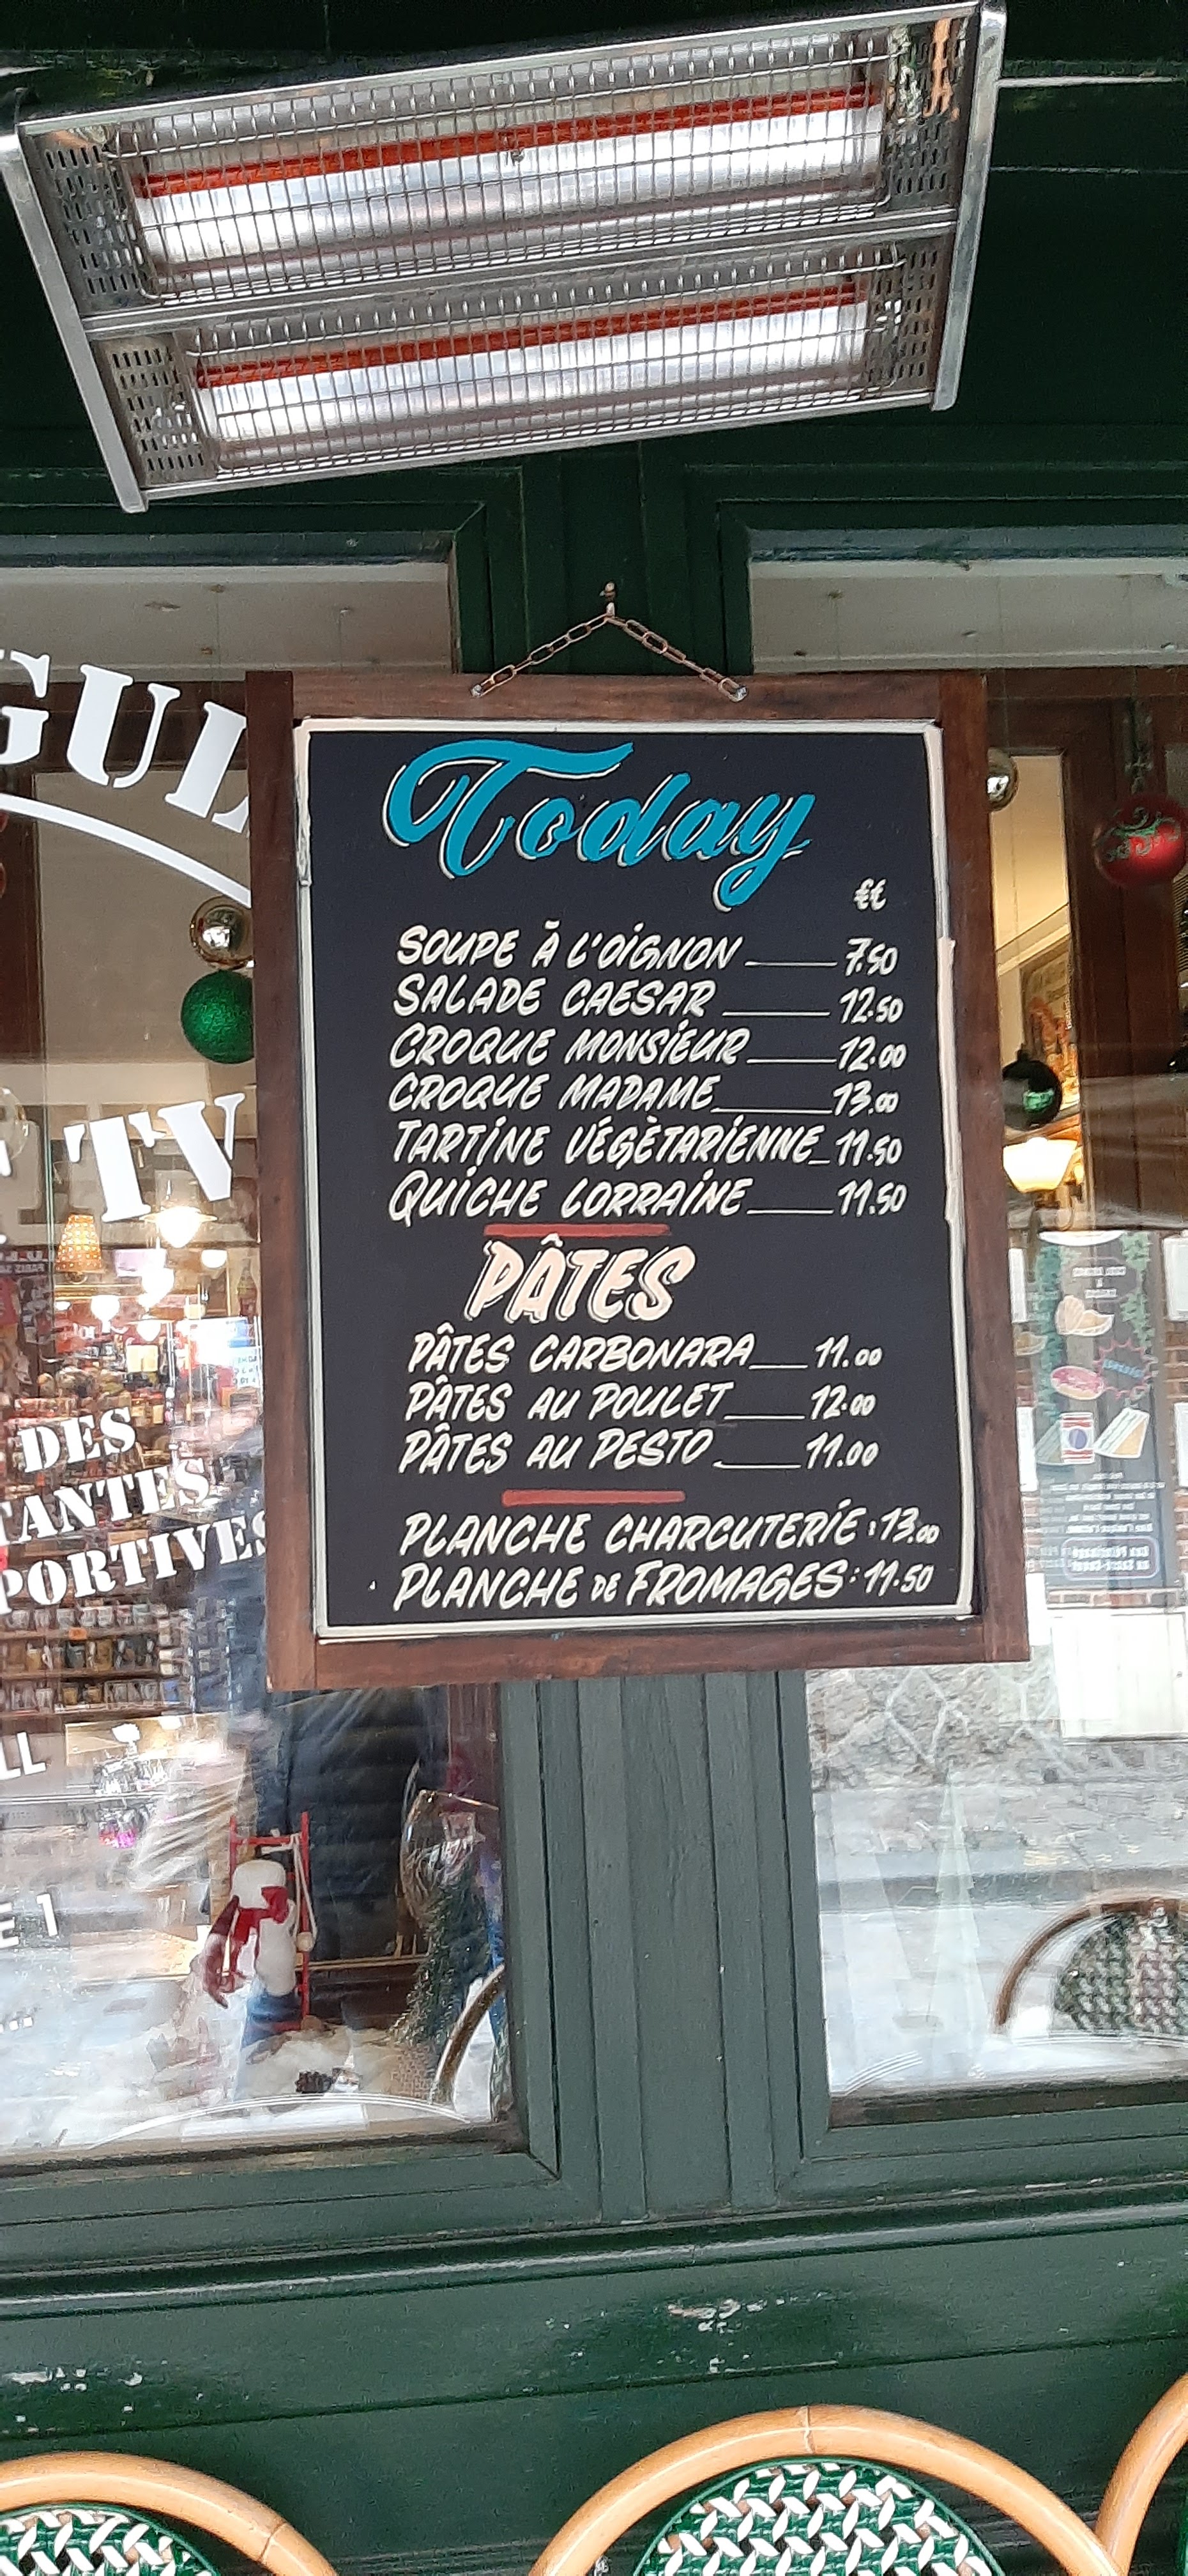 GUL
TV
DES
TANTES
PORTIVES
LL
E 1
Today
€€
SOUPE À L'OIGNON 7.50
SALADE CAESAR 12.50
CROQUE MONSIEUR 12.00
CROQUE MADAME 13.00
TARTINE VÉGÈTARIENNE 11.50
QUICHE LORRAINE 11.50
PÂTES
PÂTES CARBONARA 11.00
PÂTES AU POULET 12.00
PÂTES AU PESTO 11.00
PLANCHE CHARCUTERIE : 13.00
PLANCHE DE FROMAGES : 11.50